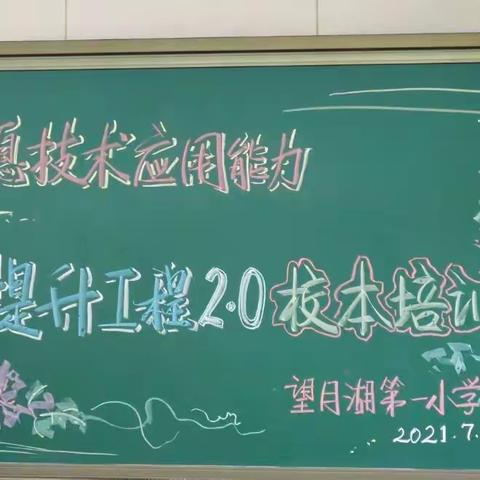 息技术应用能力
提升工程2.0校本培训
望月湖第一小学
2021.7.